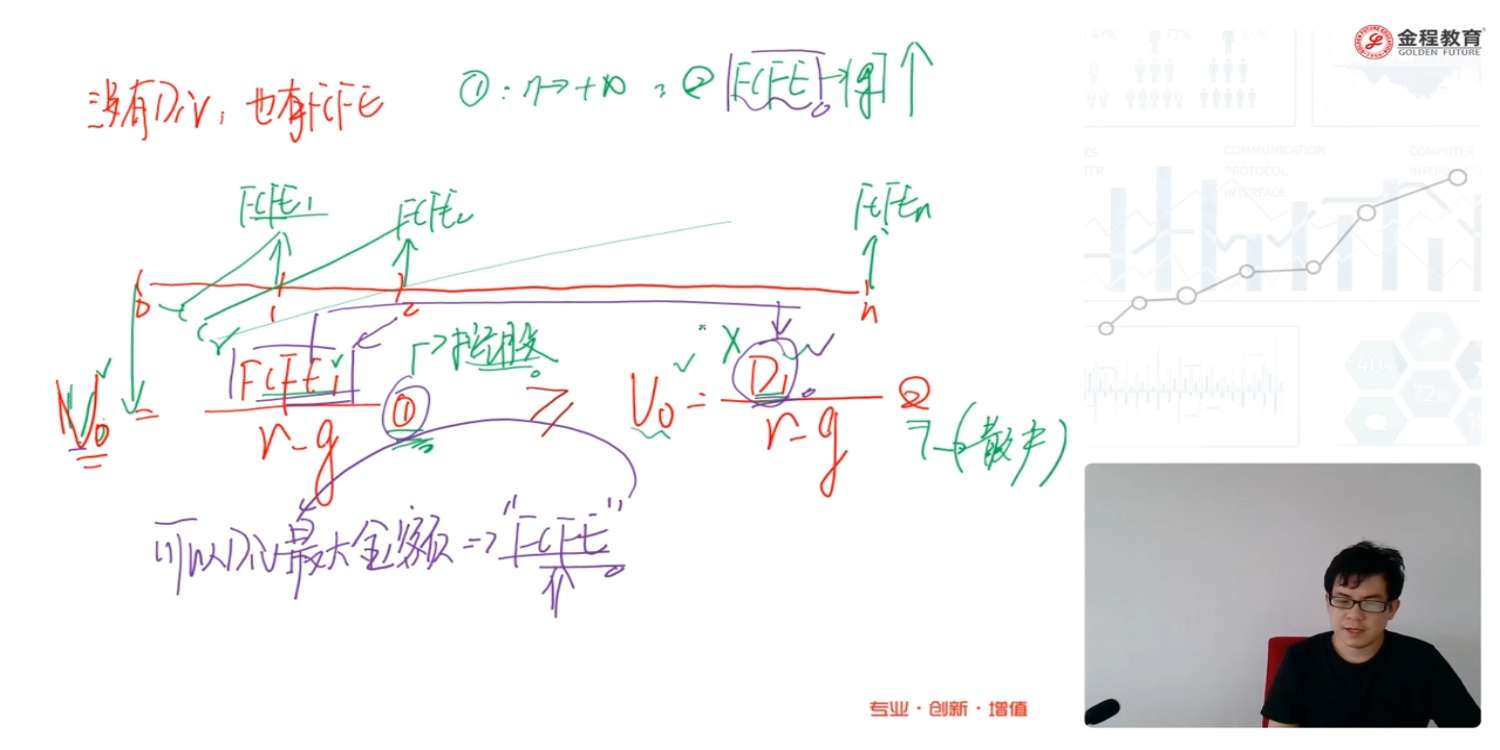 金程教育
GOLDEN FUTURE
没有Div, 也有FCFE
①: n→+∞ ; ② FCFE→g ↑
FCFE1
FCFE2
FCFEn
0 1 2 n
→控股
V0 = FCFE1 / r-g ① ≥ V0 = D1 / r-g ②
→(散户)
可以Div最大金额 => "FCFE"
COMMUNICATION
PROTOCOL
INTERFACE
COMPUTER
专业·创新·增值